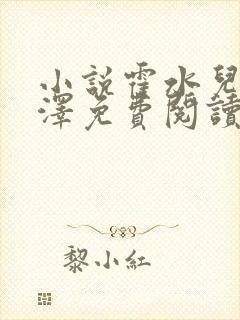 小說霍水兒
澤免費閱讀
黎小紅